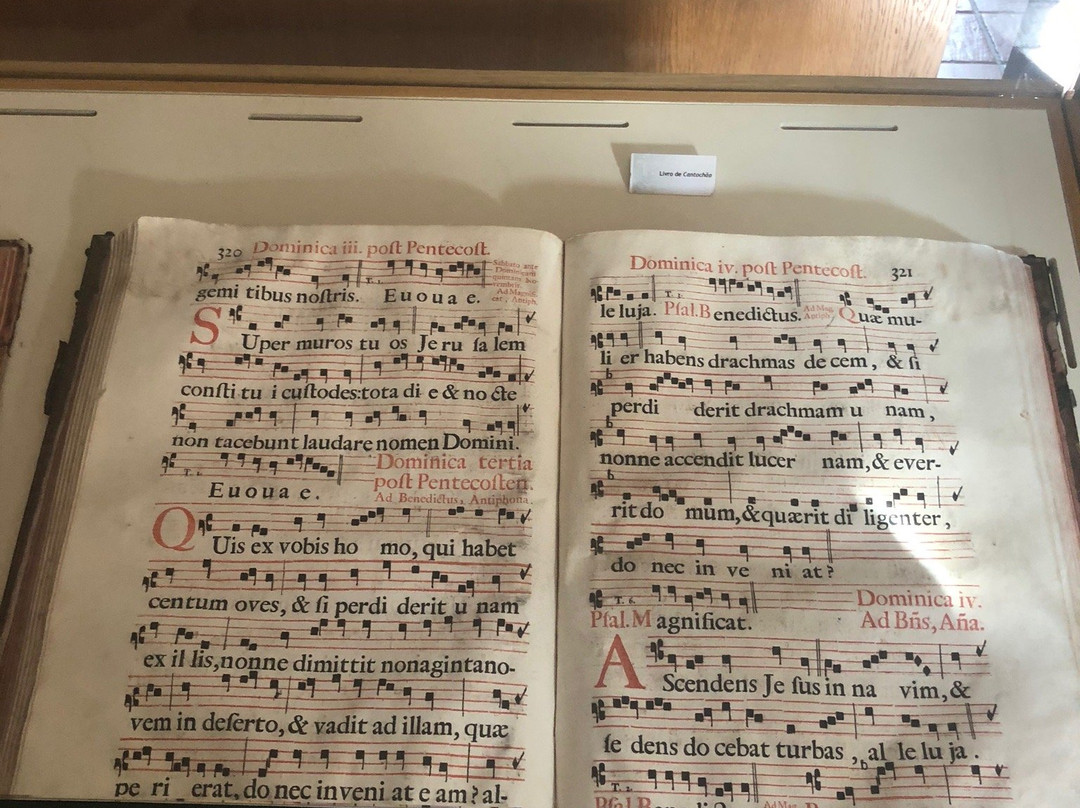 Livro de Cantochão
320 Dominica iii. poſt Pentecoſt.
gemi tibus noſtris. E u o u a e.
Sabbato ante
Dominicam
Ad Magnif.
Antiph.
SUper muros tu os Je ru ſa lem
conſti tu i cuſtodes:tota di e & no cte
non tacebunt laudare nomen Domini.
T. 1.
Dominica tertia
poſt Pentecoſten.
E u o u a e.
Ad Benedictus, Antiphona.
QUis ex vobis ho mo, qui habet
centum oves, & ſi perdi derit u nam
ex il lis,nonne dimittit nonagintano-
vem in deſerto, & vadit ad illam, quæ
pe ri erat, do nec inveni at e am? al-
Dominica iv. poſt Pentecoſt. 321
T. 1.
le luja. Pſal.B enedictus. Ad Mag. Antiph. Quæ mu-
li er habens drachmas de cem, & ſi
perdi derit drachmam u nam,
nonne accendit lucer nam,& ever-
rit do mum,&quærit di ligenter,
do nec in ve ni at?
T. 6.
Pſal.M agnificat.
Dominica iv.
Ad Bñs, Aña.
AScendens Je ſus in na vim, &
ſe dens do cebat turbas , al le lu ja.